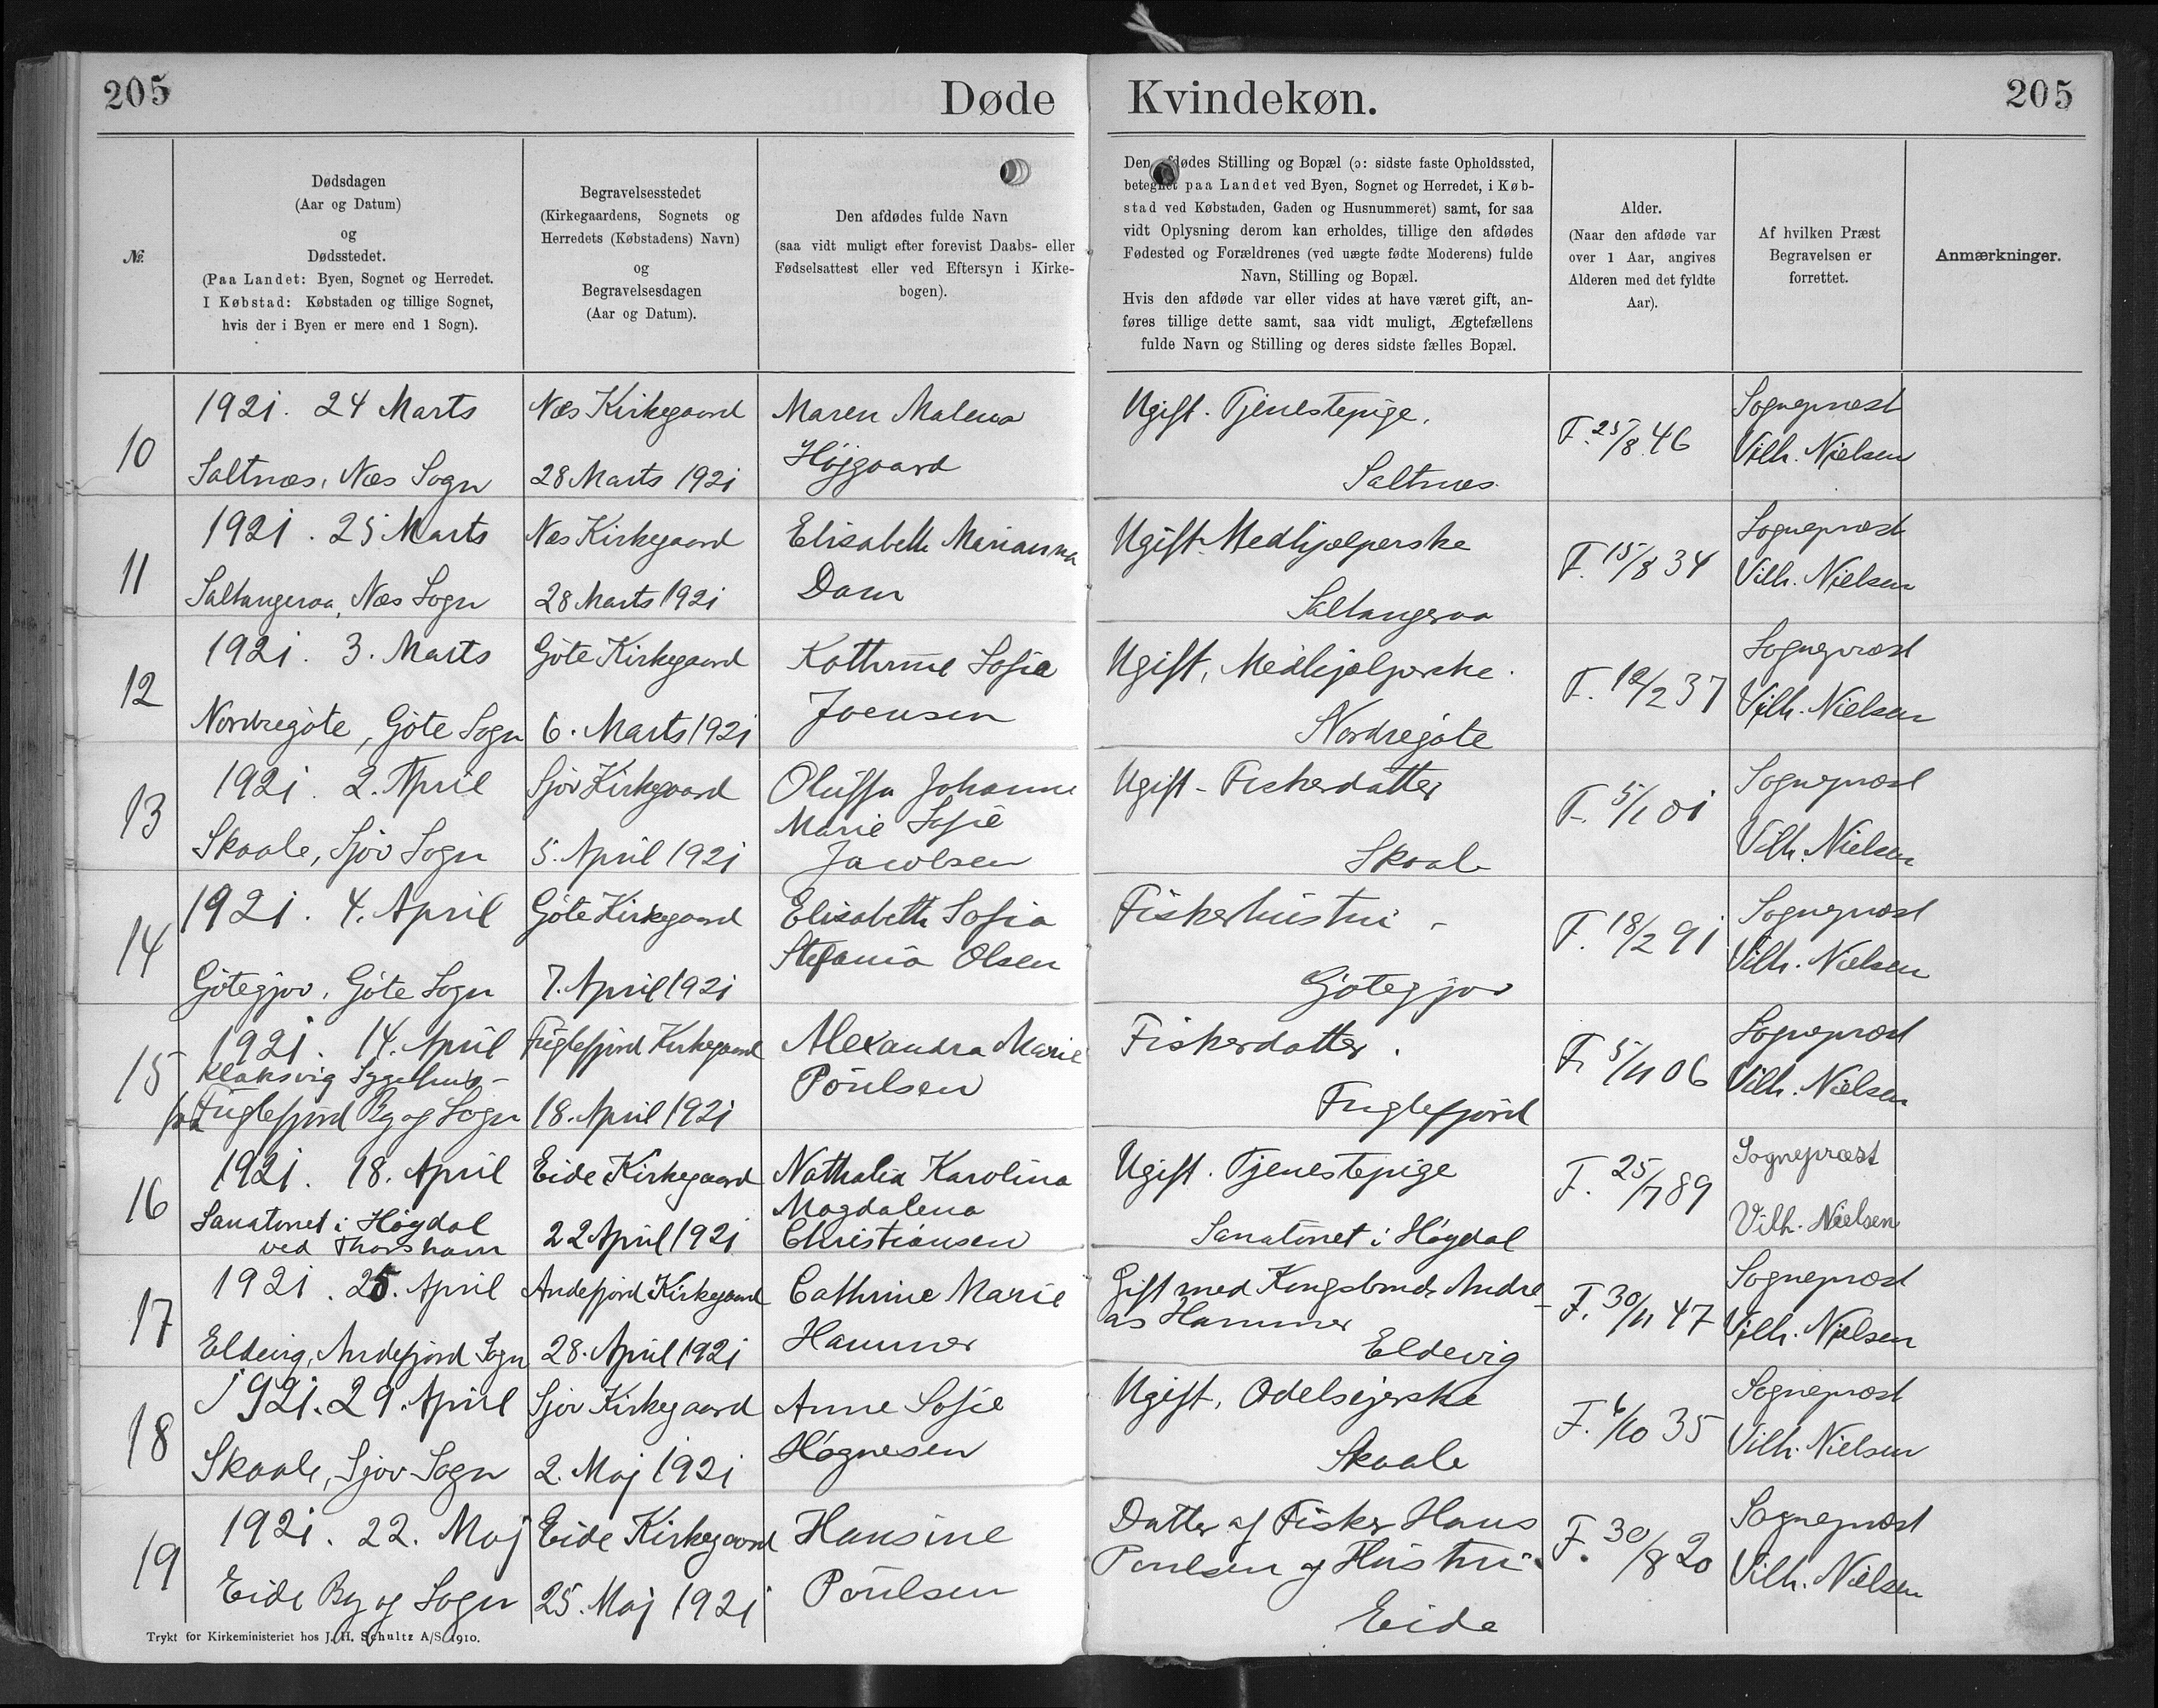 205
Døde
Kvindekøn.
205
№.
Dødsdagen
(Aar og Datum)
og
Dødsstedet.
(Paa Landet: Byen, Sognet og Herredet.
I Købstad: Købstaden og tillige Sognet,
hvis der i Byen er mere end 1 Sogn).
Begravelsesstedet
(Kirkegaardens, Sognets og
Herredets (Købstadens) Navn)
og
Begravelsesdagen
(Aar og Datum).
Den afdødes fulde Navn
(saa vidt muligt efter forevist Daabs- eller
Fødselsattest eller ved Eftersyn i Kirke-
bogen).
Den afdødes Stilling og Bopæl (ɔ: sidste faste Opholdssted,
betegnet paa Landet ved Byen, Sognet og Herredet, i Køb-
stad ved Købstaden, Gaden og Husnummeret) samt, for saa
vidt Oplysning derom kan erholdes, tillige den afdødes
Fødested og Forældrenes (ved uægte fødte Moderens) fulde
Navn, Stilling og Bopæl.
Hvis den afdøde var eller vides at have været gift, an-
føres tillige dette samt, saa vidt muligt, Ægtefællens
fulde Navn og Stilling og deres sidste fælles Bopæl.
Alder.
(Naar den afdøde var
over 1 Aar, angives
Alderen med det fyldte
Aar).
Af hvilken Præst
Begravelsen er
forrettet.
Anmærkninger.
10
1921. 24 Marts
Saltnæs, Næs Sogn
Næs Kirkegaard
28 Marts 1921
Maren Malena
Højgaard
Ugift. Tjenestepige.
Saltnæs.
F. 25/8 46
Sognepræst
Vilh. Nielsen
11
1921. 25 Marts
Saltangeraa, Næs Sogn
Næs Kirkegaard
28 Marts 1921
Elisabeth Marianna
Dam
Ugift. Medhjælperske
Saltangeraa
F. 15/8 34
Sognepræst
Vilh. Nielsen
12
1921. 3. Marts
Nordregøte, Gøte Sogn
Gøte Kirkegaard
6. Marts 1921
Kathrine Sofie
Joensen
Ugift, Medhjælperske.
Nordregøte
F. 12/2 37
Sognepræst
Vilh. Nielsen
13
1921. 2. April
Skaale, Sjov Sogn
Sjov Kirkegaard
5. April 1921
Oluffa Johanne
Marie Sofie
Jacobsen
Ugift - Fiskerdatter
Skaale
F. 5/1 01
Sognepræst
Vilh. Nielsen
14
1921. 4. April
Gøtegjov, Gøte Sogn
Gøte Kirkegaard
7. April 1921
Elisabeth Sofia
Stefania Olsen
Fiskerhustru -
Gøtegjov
F. 18/2 91
Sognepræst
Vilh. Nielsen
15
1921. 14. April
Klaksvig Sygehus -
Fuglefjord By og Sogn
Fuglefjord Kirkegaard
18. April 1921
Alexandra Marie
Poulsen
Fiskerdatter.
Fuglefjord
F. 5/11 06
Sognepræst
Vilh. Nielsen
16
1921. 18. April
Sanatoriet i Høgdal
ved Thorshavn
Eide Kirkegaard
22 April 1921
Nathalia Karolina
Magdalena
Christiansen
Ugift. Tjenestepige
Sanatoriet i Høydal
F. 25/7 89
Sognepræst
Vilh. Nielsen
17
1921. 25. April
Eldevig, Andefjord Sogn
Andefjord Kirkegaard
28. April 1921
Cathrine Marie
Hammer
Gift med Kongsbonde Andre-
as Hammer
Eldevig
F. 30/11 47
Sognepræst
Vilh. Nielsen
18
1921. 29. April
Skaale, Sjov Sogn
Sjov Kirkegaard
2. Maj 1921
Anne Sofie
Høgnesen
Ugift, Odelsejerske
Skaale
F. 6/10 35
Sognepræst
Vilh. Nielsen
19
1921. 22. Maj
Eide By og Sogn
Eide Kirkegaard
25. Maj 1921
Hansine
Poulsen
Datter af Fisker Hans
Poulsen og Hustru
Eide
F. 30/8 20
Sognepræst
Vilh. Nielsen
Trykt for Kirkeministeriet hos J. H. Schultz A/S 1910.